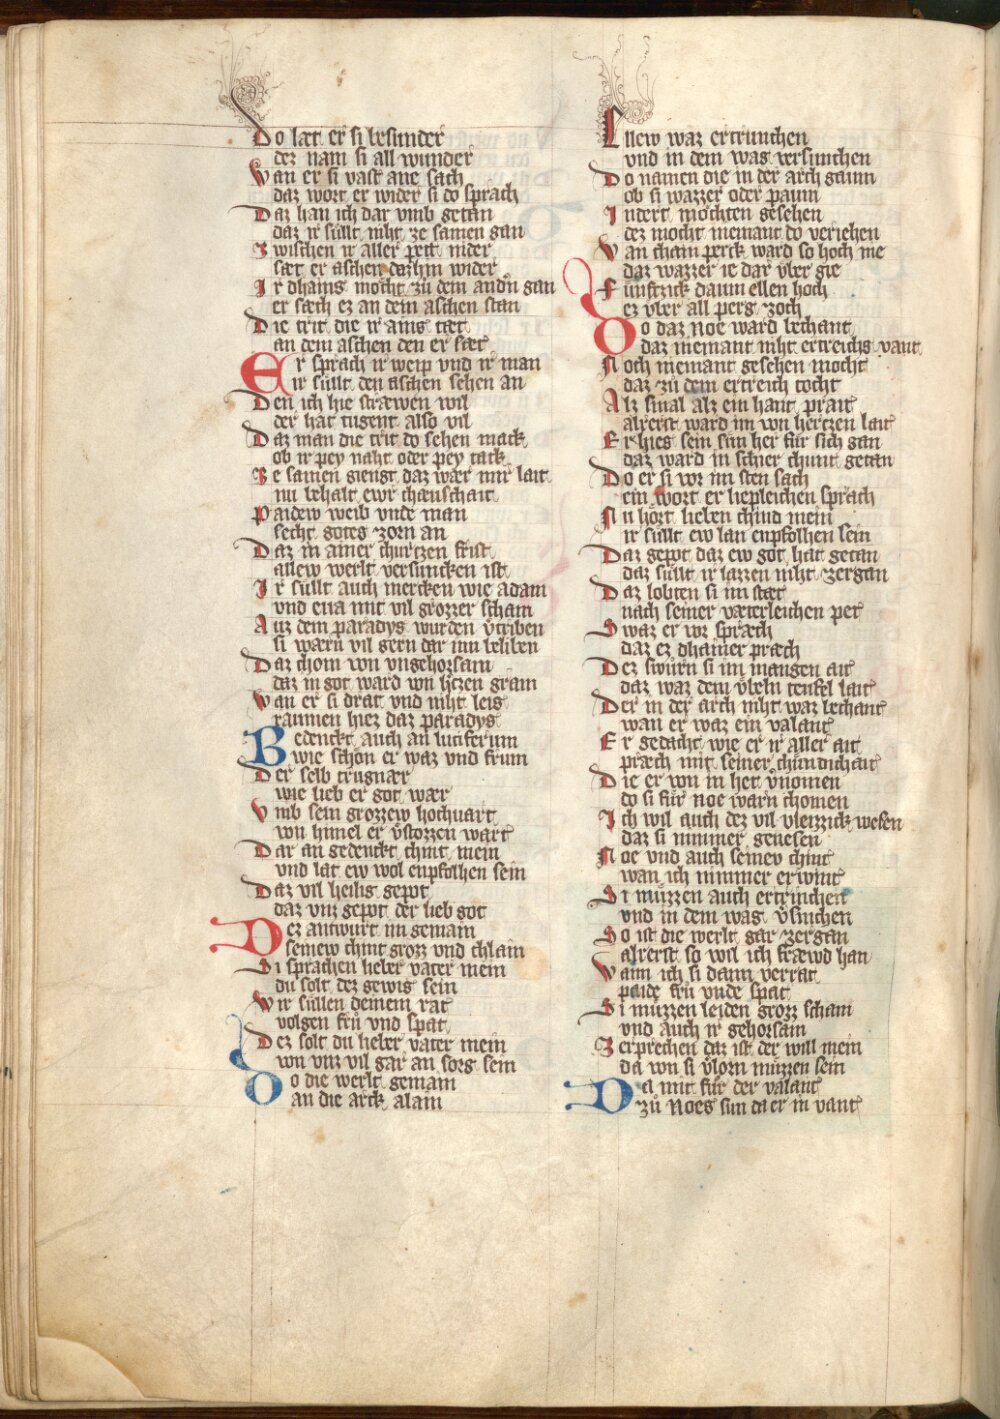 Do læt er si besunder
dez nam si all wunder
Wan er si vast ane sach
daz wort er wider si do sprach
Daz han ich dar vmb getan
daz ir süllt niht ze samen gan
Zwischen ir aller pett nider
sæt er aschen dazhin wider
Ir dhains mocht zu dem andn gan
er sæch ez an dem aschen stan
Die trit die ir ains tæt
an dem aschen den er sæt
Er sprach ir weip vnd ir man
ir süllt den aschen sehen an
Den ich hie stræwen wil
der hat tugent also vil
Daz man die trit do sehen mack
ob ir pey naht oder pey tack
Ze samen giengt daz wær mir lait
nu behalt ewr chænschait
Paidew weib vnde man
secht gotes zorn an
Daz in ainer churtzen frist
allew werlt versuncken ist
Ir süllt auch mercken wie adam
vnd eua mit vil grozzer scham
Auz dem paradys wurden vtriben
si wærn vil gern dar inn beliben
Daz chom von vngehorsam
daz in got ward von hczen gram
Wan er si drat vnd niht leis
raumen hiez daz paradys
Bedenckt auch an luciferum
wie schön er waz vnd frum
Der selb trugnær
wie lieb er got wær
Vmb sein grozzew hochuart
von himel er vstozzen wart
Dar an gedenckt chint mein
vnd lat ew wol enpfolhen sein
Daz vil heilig gepot
daz vnz gepot der lieb got
Dez antwurt im gemain
seinew chint grozz vnd chlain
Si sprachen lieber vater mein
du solt dez gewis sein
Wir süllen deinem rat
volgen frü vnd spat
Dez solt du lieber vater mein
von vnz vil gar an sorg sein
Do die werlt gemain
an die arck alain
Allew waz ertrunchen
vnd in dem was versunchen
Do namen die in der arch gaum
ob si wazzer oder paum
Indert möchten gesehen
dez mocht niemant do veriehen
Wan chain perck ward so hoch nie
daz wazzer ie dar vber gie
Funftzick daum ellen hoch
ez vber all perg zoch
Do daz noe ward bechant
daz niemant niht ertreichs vant
Noch niemant gesehen mocht
daz zu dem ertreich tocht
Alz smal alz ein hant prait
alrerst ward im von hertzen lait
Er hies sein sün her für sich gan
daz ward in schier chunt getan
Do er si vor im sten sach
ein wort er liepleichen sprach
Nu hört lieben chind mein
ir süllt ew lan enpfolhen sein
Daz gepot daz ew got hat getan
daz süllt ir lazzen niht zergan
Daz lobten si im stæt
nach seiner væterleichen pet
Swaz er vor spræch
daz ez dhainer præch
Dez swurn si im mangen ait
daz waz dem vbeln teufel lait
Der in der arch niht waz bechant
wan er waz ein valant
Er gedacht wie er ir aller ait
præch mit seiner chündichait
Die er von in het vnomen
do si für noe warn chomen
Ich wil auch dez vil vleizzick wesen
daz si nimmer genesen
Noe vnd auch seinev chint
wan ich nimmer erwint
Si müzzen auch ertrinchen
vnd in dem was vsinchen
So ist die werlt gar zergan
alrerst so wil ich fræwd han
Wann ich si dann verrat
paide frü vnde spat
Si müzzen leiden grozz scham
vnd auch ir gehorsam
Zerprechen daz ist der will mein
da von si vlorn müzzen sein
Da mit für der valant
zu Noes sun da er in vant